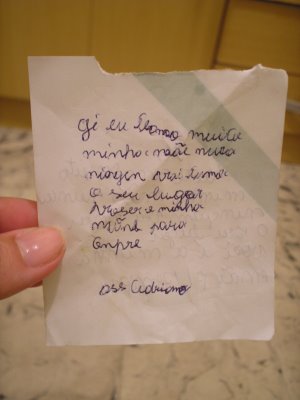 Gi eu teamo muita
minha mãe nuca
ningen vai tomar
o seu lugar
vroser e minha
mãe para
senpre
ass Adriano